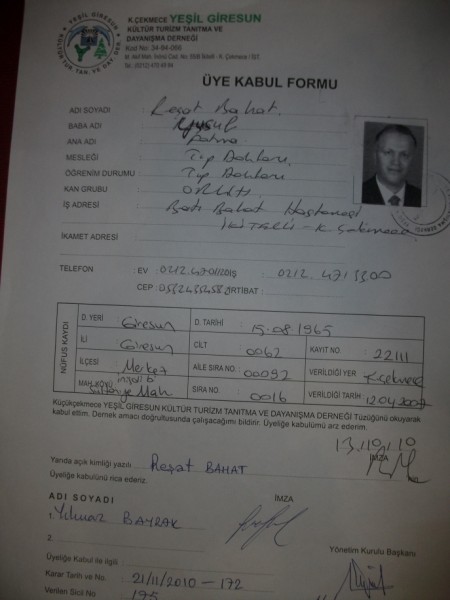 K.ÇEKMECE YEŞİL GİRESUN
KÜLTÜR TURİZM TANITMA VE
DAYANIŞMA DERNEĞİ
Kod No: 34-84-066
Tel: (0212)
ÜYE KABUL FORMU
ADI SOYADI : Reşat Bahat
BABA ADI : Yusuf
ANA ADI : Fatma
MESLEĞİ : Tıp Doktoru
ÖĞRENİM DURUMU : Tıp Doktoru
KAN GRUBU :
İŞ ADRESİ : Batı Bahat Hastanesi
İKİTELLİ - K. Çekmece
İKAMET ADRESİ :
TELEFON : EV : 0212 İŞ : 0212 471 3300
CEP : İRTİBAT :
NÜFUS KAYDI
D. YERİ : Giresun D. TARİHİ : 15-08-1965
İLİ : Giresun CİLT : 0062 KAYIT NO : 22111
İLÇESİ : Merkez AİLE SIRA NO : 00092 VERİLDİĞİ YER : K.Çekmece
MAH./KÖYÜ : Mah SIRA NO : 0016 VERİLDİĞİ TARİH : 12.04.2007
Küçükçekmece YEŞİL GİRESUN KÜLTÜR TURİZM TANITMA VE DAYANIŞMA DERNEĞİ Tüzüğünü okuyarak
kabul ettim. Dernek amacı doğrultusunda çalışacağımı bildirir. Üyeliğe kabulümü arz ederim.
13.10.10
İMZA
Yanda açık kimliği yazılı Reşat BAHAT
Üyeliğe kabulünü rica ederiz.
ADI SOYADI İMZA
1. Yılmaz BAYRAK
2.
Üyeliğe Kabul ile ilgili Yönetim Kurulu Başkanı
Karar Tarih ve No : 21/11/2010 - 172
Verilen Sicil No : 195